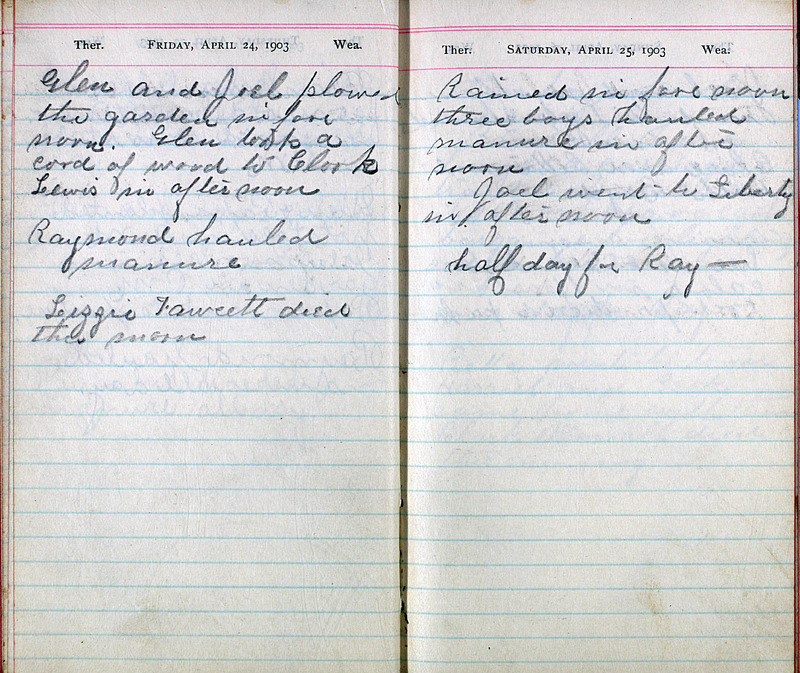 Ther. FRIDAY, APRIL 24, 1903 Wea.
Glen and Joel plowed
the garden in fore
noon. Glen took a
cord of wood to
Lewis in after noon
Raymond hauled
manure
Lizzie Fawcett died
this noon
Ther. SATURDAY, APRIL 25, 1903 Wea.
Rained in fore noon
three boys hauled
manure in after
noon
Joel went to Liberty
in after noon
half day for Ray —